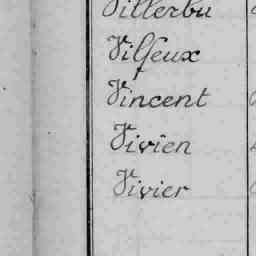 Villerbu
Vilfeux
Vincent
Vivien
Vivier